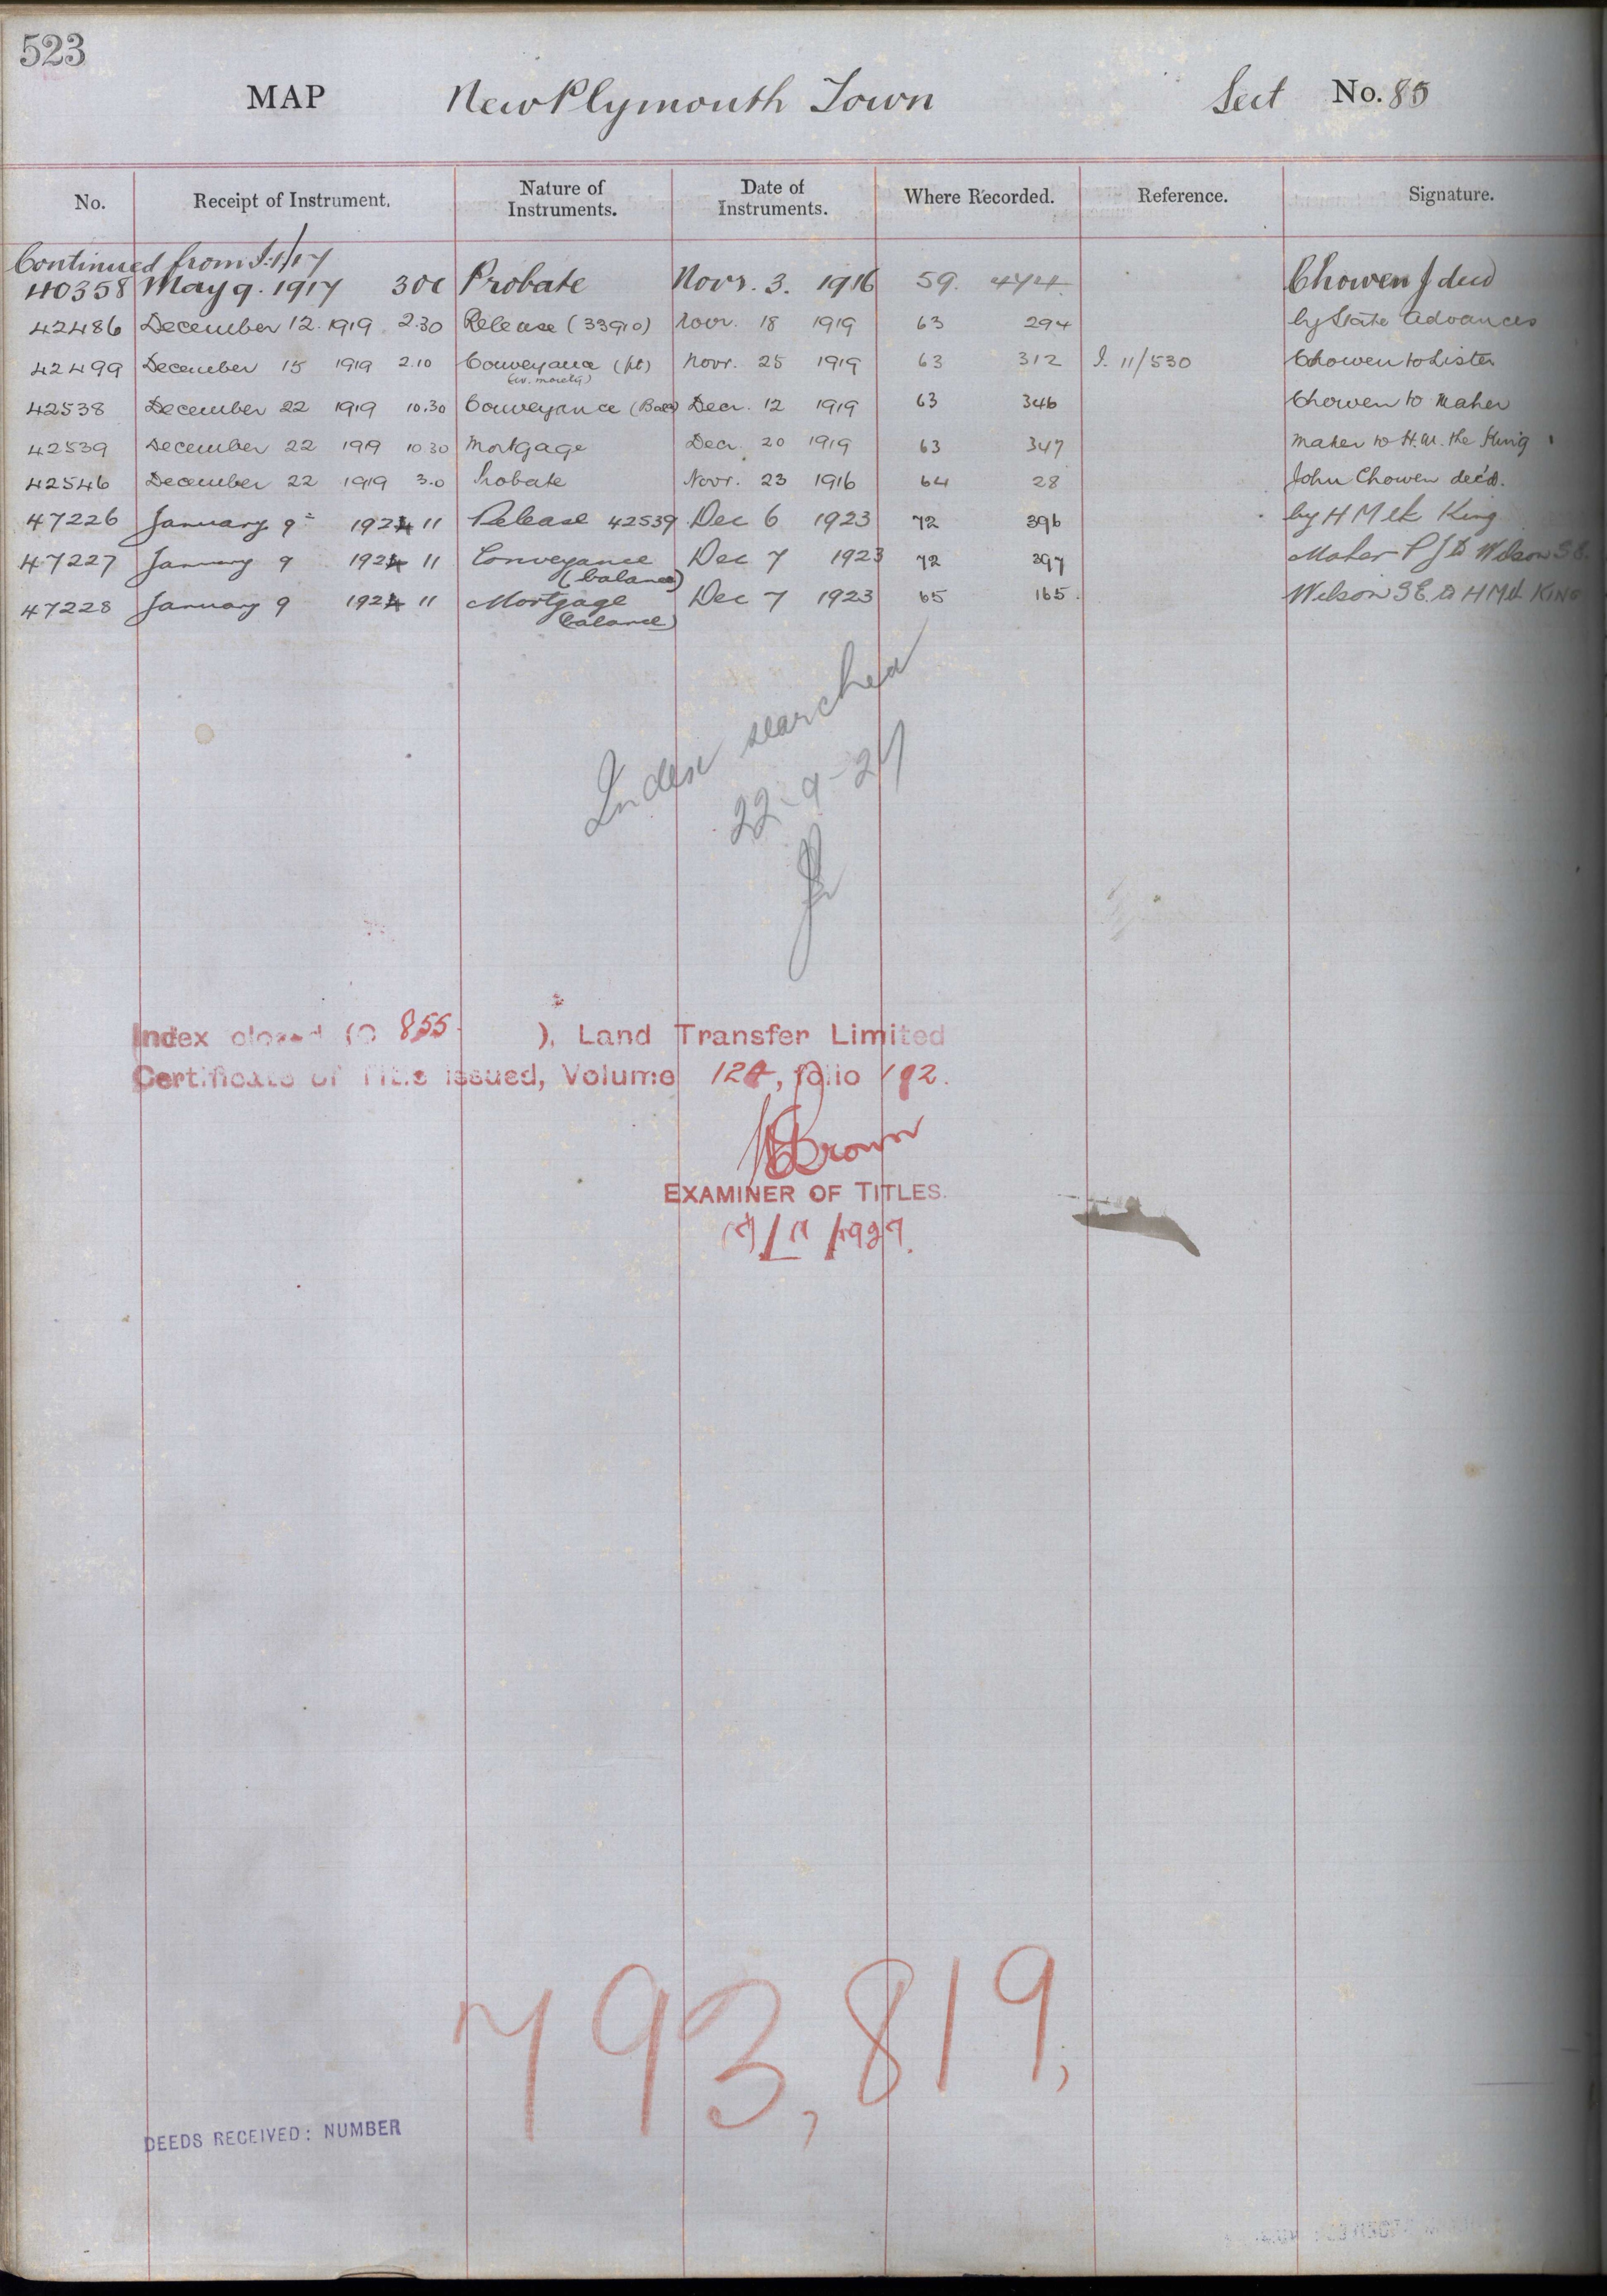 523
MAP New Plymouth Town Sect No. 85
No. Receipt of Instrument. Nature of Instruments. Date of Instruments. Where Recorded. Reference. Signature.
Continued from I.1/17
40358 May 9. 1917 Probate Novr. 3. 1916 59. 474. Chowen J decd
42486 December 12. 1919 2.30 Release (33910) Novr. 18 1919 63 294 by State Advances
42499 December 15 1919 2.10 Conveyance (pt) Novr. 25 1919 63 312 I. 11/530 Chowen to Lister
42538 December 22 1919 10.30 Conveyance (Bal) Decr. 12 1919 63 346 Chowen to Maher
42539 December 22 1919 10 30 Mortgage Decr. 20 1919 63 347 Maher to H.M. the King
42546 December 22 1919 3.0 Probate Novr. 23 1916 64 28 John Chowen dec'd.
47226 January 9 1924 11 Release 42539 Dec 6 1923 72 396 by H M the King
47227 January 9 1924 11 Conveyance Dec 7 1923 72 397 Maher P J to Wilson S E.
(balance)
47228 January 9 1924 11 Mortgage Dec 7 1923 65 165. Wilson S E. to H M the KING
(balance)
Index searched
22-9-27
Index closed (C 855 ), Land Transfer Limited
Certificate of Title issued, Volume 124, folio 192.
Brown
EXAMINER OF TITLES.
793,819,
DEEDS RECEIVED: NUMBER